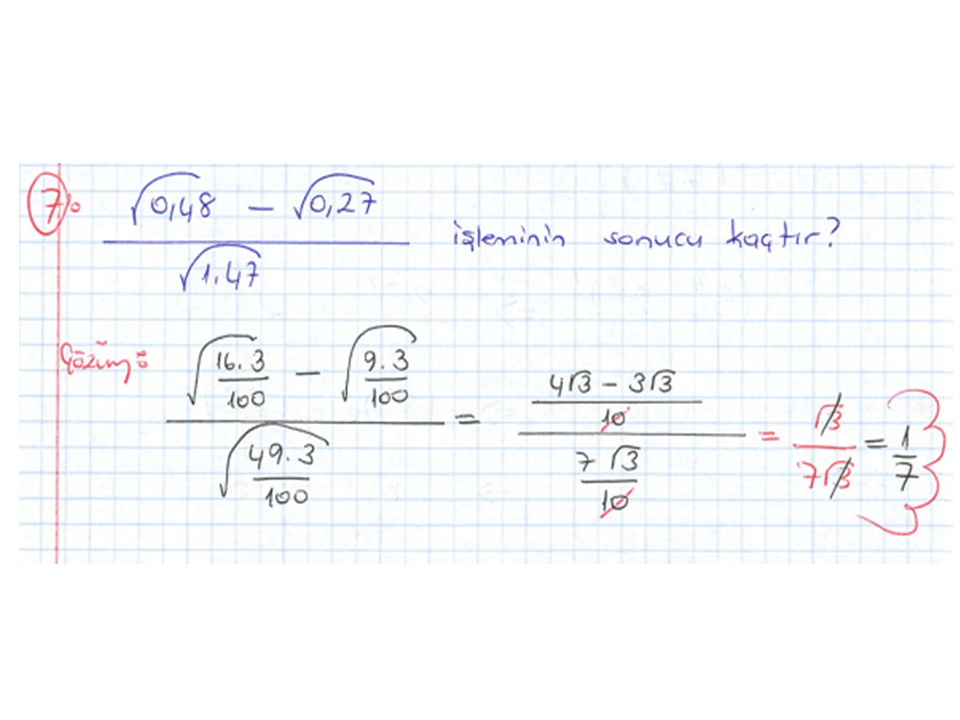 7) √0,48 − √0,27 / √1.47 işleminin sonucu kaçtır?
Çözüm: (√(16.3/100) − √(9.3/100)) / √(49.3/100) = ((4√3 − 3√3)/10) / (7√3/10) = √3/7√3 = 1/7